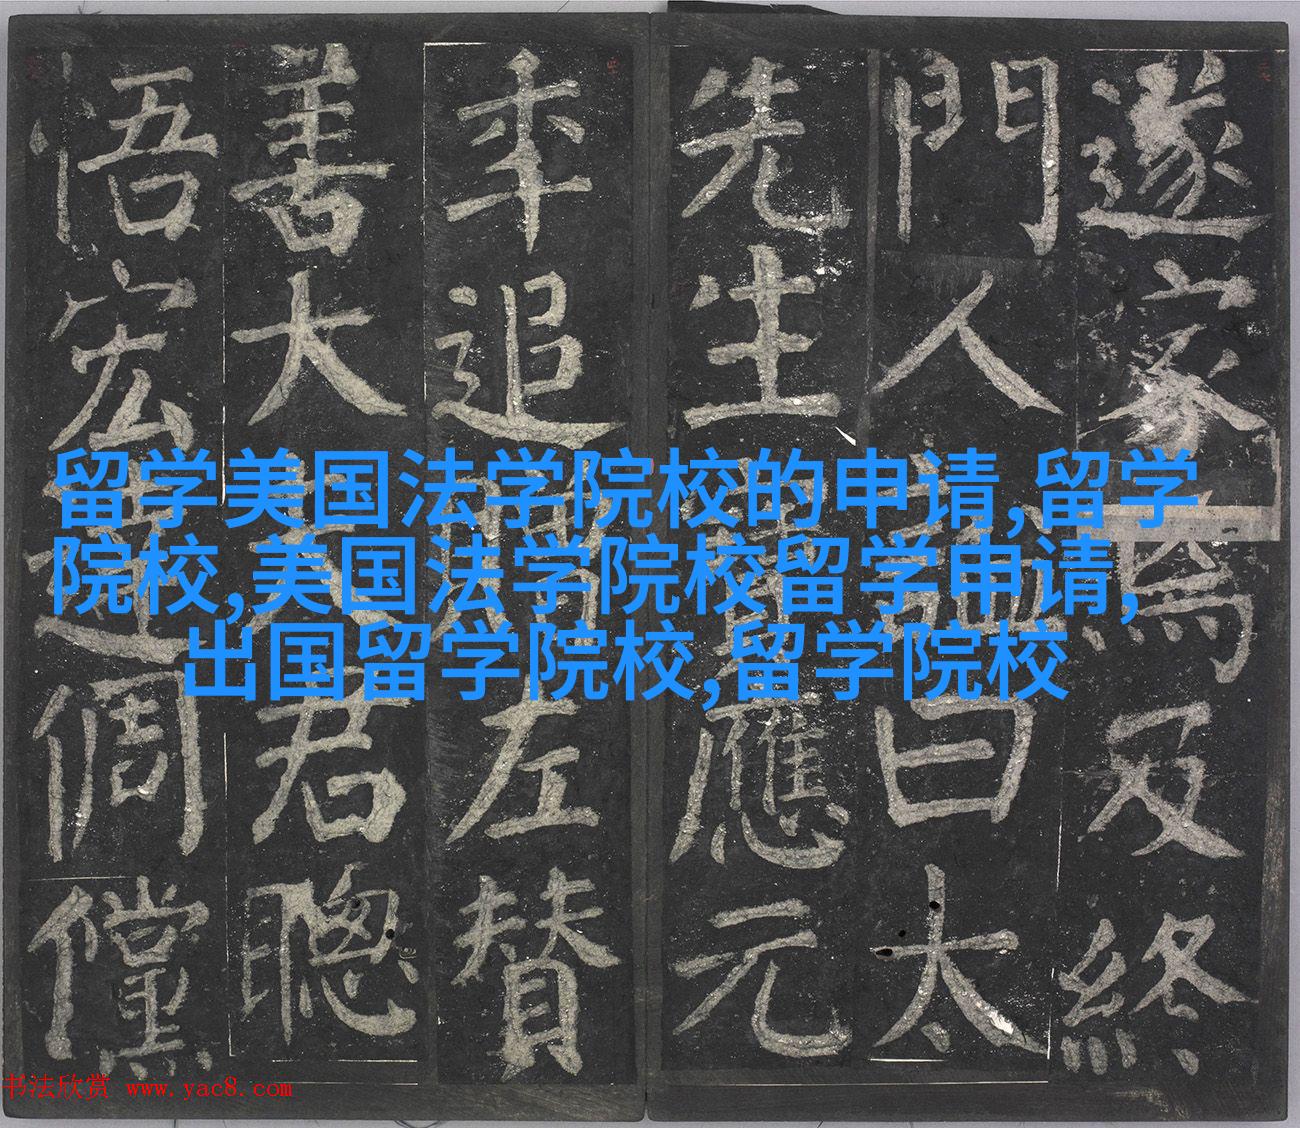 遂家焉及終
門人曰太
先生應元
年追左贊
善大君聰
悟宏倜儻
留学美国法学院校的申请,留学
院校,美国法学院校留学申请,
出国留学院校,留学院校
书法欣赏 www.yac8.com